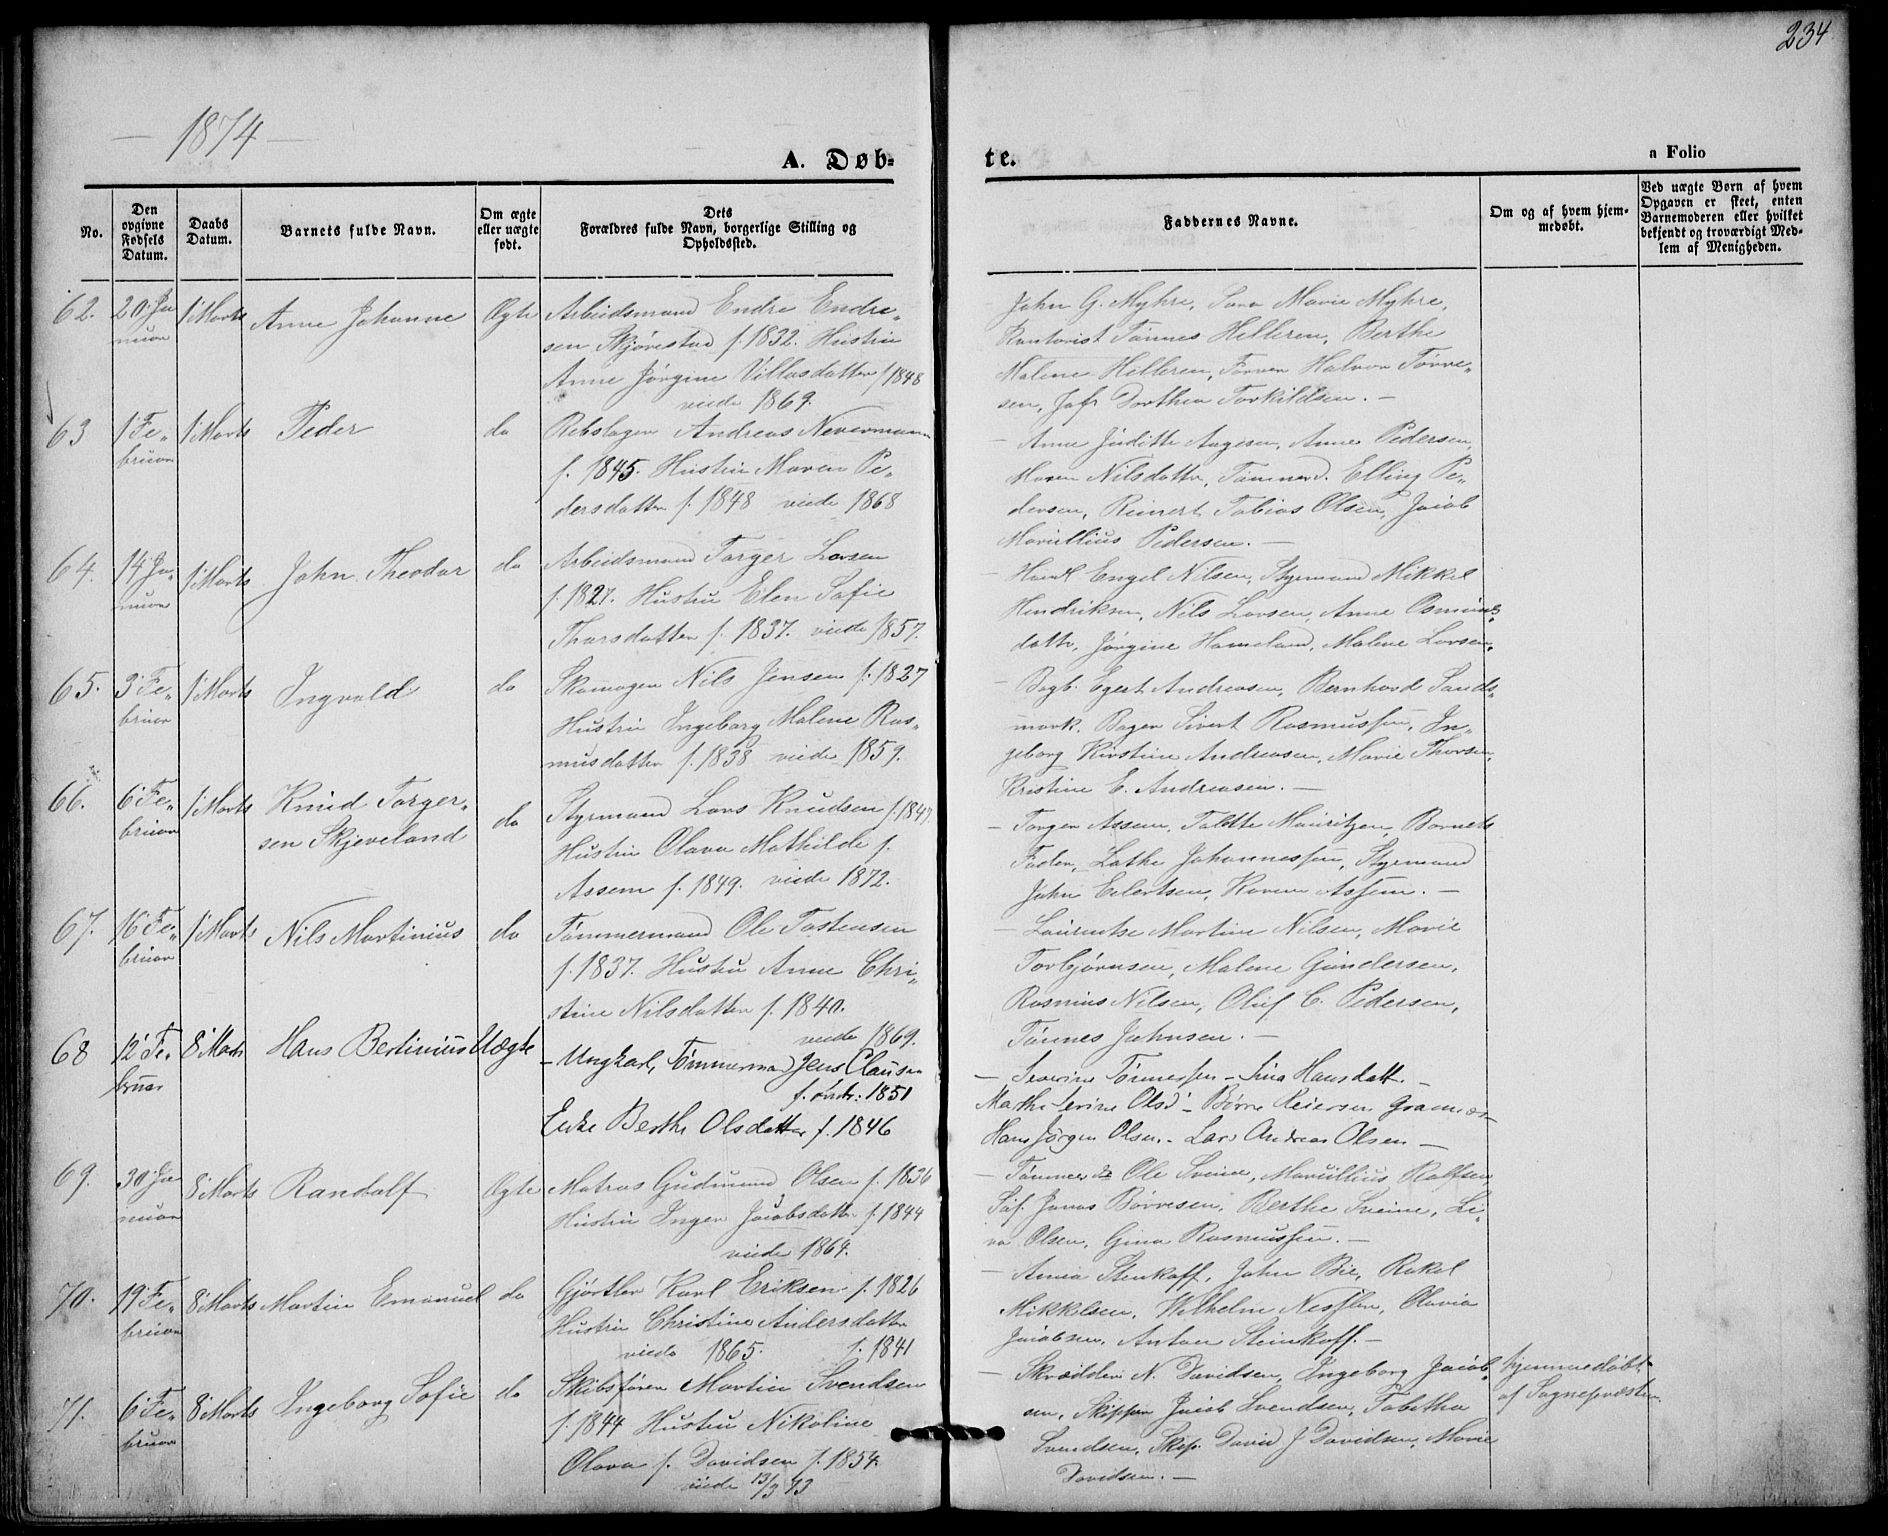 234
— 1874 —
A. Døb-
te.
a Folio
No.
Den opgivne Fødsels Datum.
Daabs Datum.
Barnets fulde Navn.
Om ægte eller uægte født.
Dets Forældres fulde Navn, borgerlige Stilling og Opholdssted.
Faddernes Navne.
Om og af hvem hjemmedøbt.
Ved uægte Børn af hvem Opgaven er skeet, enten Barnemoderen eller hvilket bekjendt og troværdigt Medlem af Menigheden.
62. 20 Ja- 1 Marts Anne Johanne Ægte Arbeidsmand Endre Endre-
nuar sen Skjørestad f. 1832. Hustru
Anne Jørgine Villasdatter f 1848
viede 1869.
John G. Myhre, Sara Marie Myhre,
Kontorist Tønnes Helleren, Berthe
Malene Helleren, Farver Halvor Tørre-
sen, Jofr Dorthea Torkildsen. —
63 1 Fe- 1 Marts Peder do Rebslager Andreas Nevermann
bruar f. 1845. Hustru Maren Pe-
dersdatter f. 1848 viede 1868
— Anne Juditte Aagesen, Anne Pedersen,
Maren Nilsdatter, Tømmerd. Elling Pe-
dersen, Reinert Tobias Olsen, Jacob
Maurillius Pedersen. —
64. 14 Ja- 1 Marts John Theodor do Arbeidsmand Torger Larsen
nuar f. 1827. Hustru Elen Sofie
Thorsdatter f. 1837. viede 1857.
— Handl Engel Nilsen, Styrmand Mikkel
Hendriksen, Nils Larsen, Anne Osmunds-
datter, Jørgine Hameland, Malene Larsen.
65. 3 Fe- 1 Marts Ingvald do Skomager Nils Jensen f. 1827
bruar Hustru Ingeborg Malene Ras-
musdatter f. 1838 viede 1859.
— Bogb. Egert Andreasen, Bernhard Sands-
mark, Bager Sivert Rasmussen, In-
geborg Kirstine Andreasen, Marie Thorsen,
Kristine E. Andreasen. —
66. 6 Fe- 1 Marts Knud Torger- do Styrmand Lars Knudsen f. 1847
bruar sen Skjeveland Hustru Olava Mathilde f.
Assem f. 1849. viede 1872.
— Torger Assem, Taletta Mauritzen, Barnets
Fader, Lathe Johannessen, Styrmand
John Eilertsen, Karen Assem. —
67. 16 Fe- 1 Marts Nils Martinius do Tømmermand Ole Tostensen
bruar f. 1837. Hustru Anne Chri-
stine Nilsdatter f. 1840.
viede 1869.
— Lauentse Martine Nilsen, Marie
Torbjørnsen, Malene Gundersen,
Rasmus Nilsen, Oluf C. Pedersen,
Tønnes Johnsen. —
68 12 Fe- 8 Marts Hans Bertinius Uægte — Ungkarl, Tømmermand Jens Clausen
bruar f. 1851
Enke Berthe Olsdatter f. 1846
— Severine Tønnessen — Sina Hansdatter —
Marthe Serine Olsd — Børre Reiersen
Hans Jørgen Olsen. — Lars Andreas Olsen —
69. 30 Ja- 8 Marts Randolf Ægte Matros Gudmund Olsen f. 1836
nuar Hustru Inger Jacobsdatter f. 1844
viede 1869.
— Tømmerd Ole Sveine, Maurillius Rolfsen
Søf. Jonas Børresen, Berthe Sveine, Li-
va Olsen, Gina Rasmussen. —
70. 19 Fe- 8 Marts Martin Emanuel do Gjørtler Karl Eriksen f. 1826
bruar Hustru Christine Andersdatter
viede 1865. f. 1841
— Anna Stenkoff, John Bie, Rakel
Mikkelsen, Wilhelm Nessler, Olavia
Jacobsen, Anton Steinkoff. —
71. 6 Fe- 8 Marts Ingeborg Sofie do Skibsfører Martin Svendsen
bruar f. 1844 Hustru Nikoline
Olava f. Davidsen f. 1854.
viede 13/3 73
— Skrædder N. Davidsen, Ingeborg Jacob-
sen, Skipper Jacob Svendsen, Tabitha
Svendsen, Skip. David J Davidsen, Marie
Davidsen. —
hjemmedøbt
af Sognepræsten.